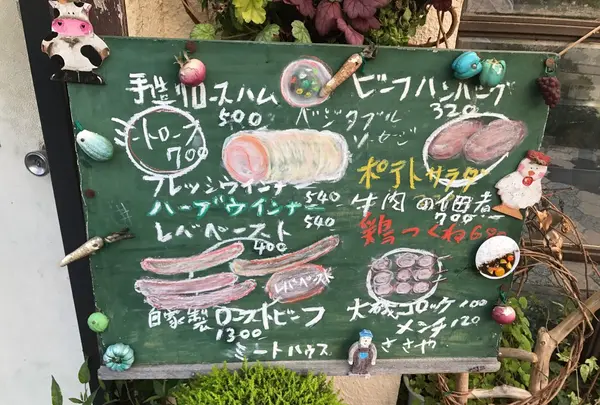 手造りロースハム
500
ベジタブル
ソーセージ
ビーフハンバーグ
320
トロース
700
フレッシュウインナ 540
ハーブウインナ 540
レバペースト
400
ポテトサラダ
牛肉の佃煮
700
鶏つくね
レバペースト
自家製ローストビーフ
1300
大磯コロッケ 100
メンチ 120
ミートハウス ささや